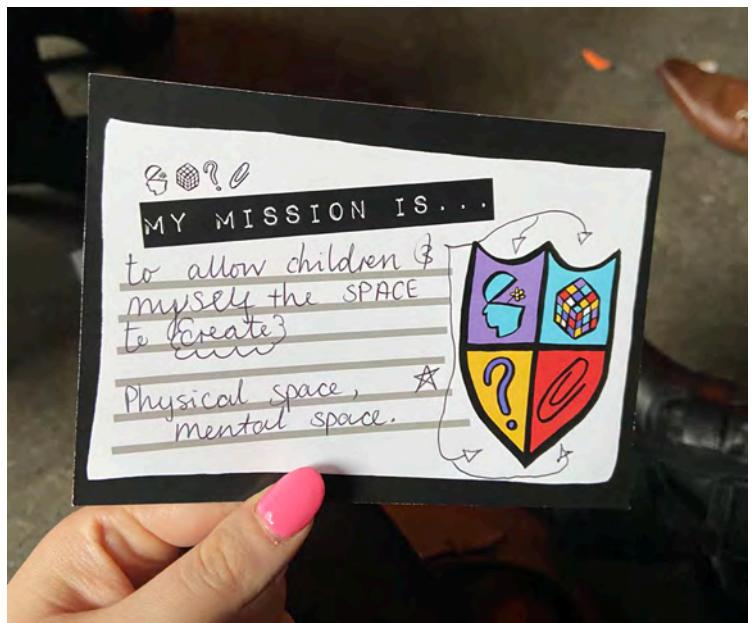 MY MISSION IS...
to allow children &
myself the SPACE
to {create}
Physical space,
mental space.